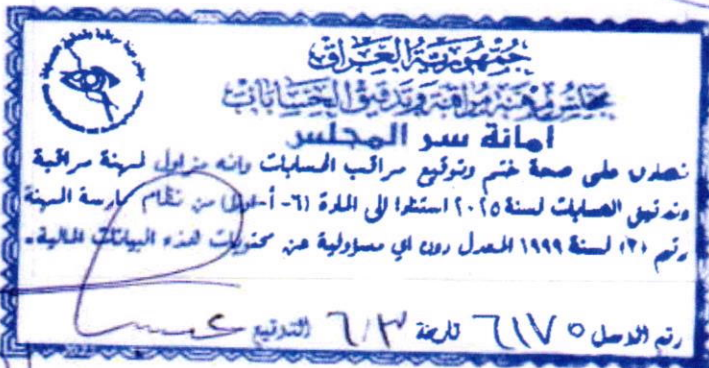 جمهورية العراق
مجلس مهنة مراقبة وتدقيق الحسابات
امانة سر المجلس
نصادق على صحة ختم وتوقيع مراقب الحسابات وانه مزاول لمهنة مراقبة
وتدقيق الحسابات لسنة ٢٠٢٥ استنادا الى المادة (٦- أ-اولا) من نظام ممارسة المهنة
رقم (٣) لسنة ١٩٩٩ المعدل دون اي مسؤولية عن محتويات هذه البيانات المالية.
رقم الوصل ٦١٧٥ تاريخه ٦/٣ التوقيع